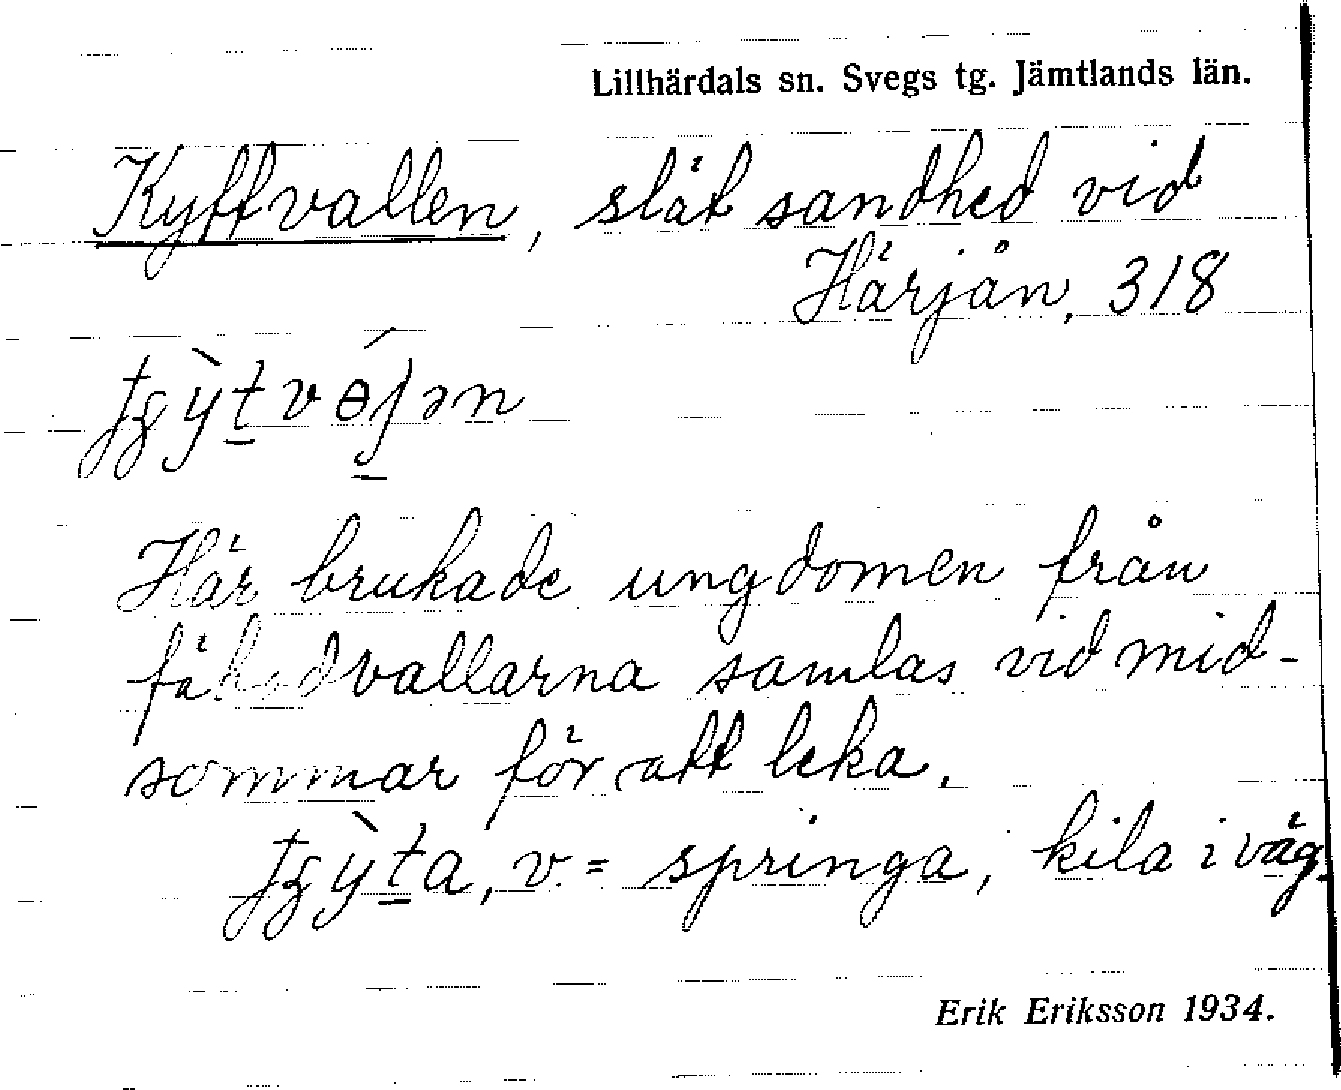 Lillhärdals sn. Svegs tg. Jämtlands län.
Kyttvallen, slät sandhed vid
Härjån, 318
Här brukade ungdomen från
fäbodvallarna samlas vid mid-
sommar för att leka.
v. = springa, kila i väg.
Erik Eriksson 1934.